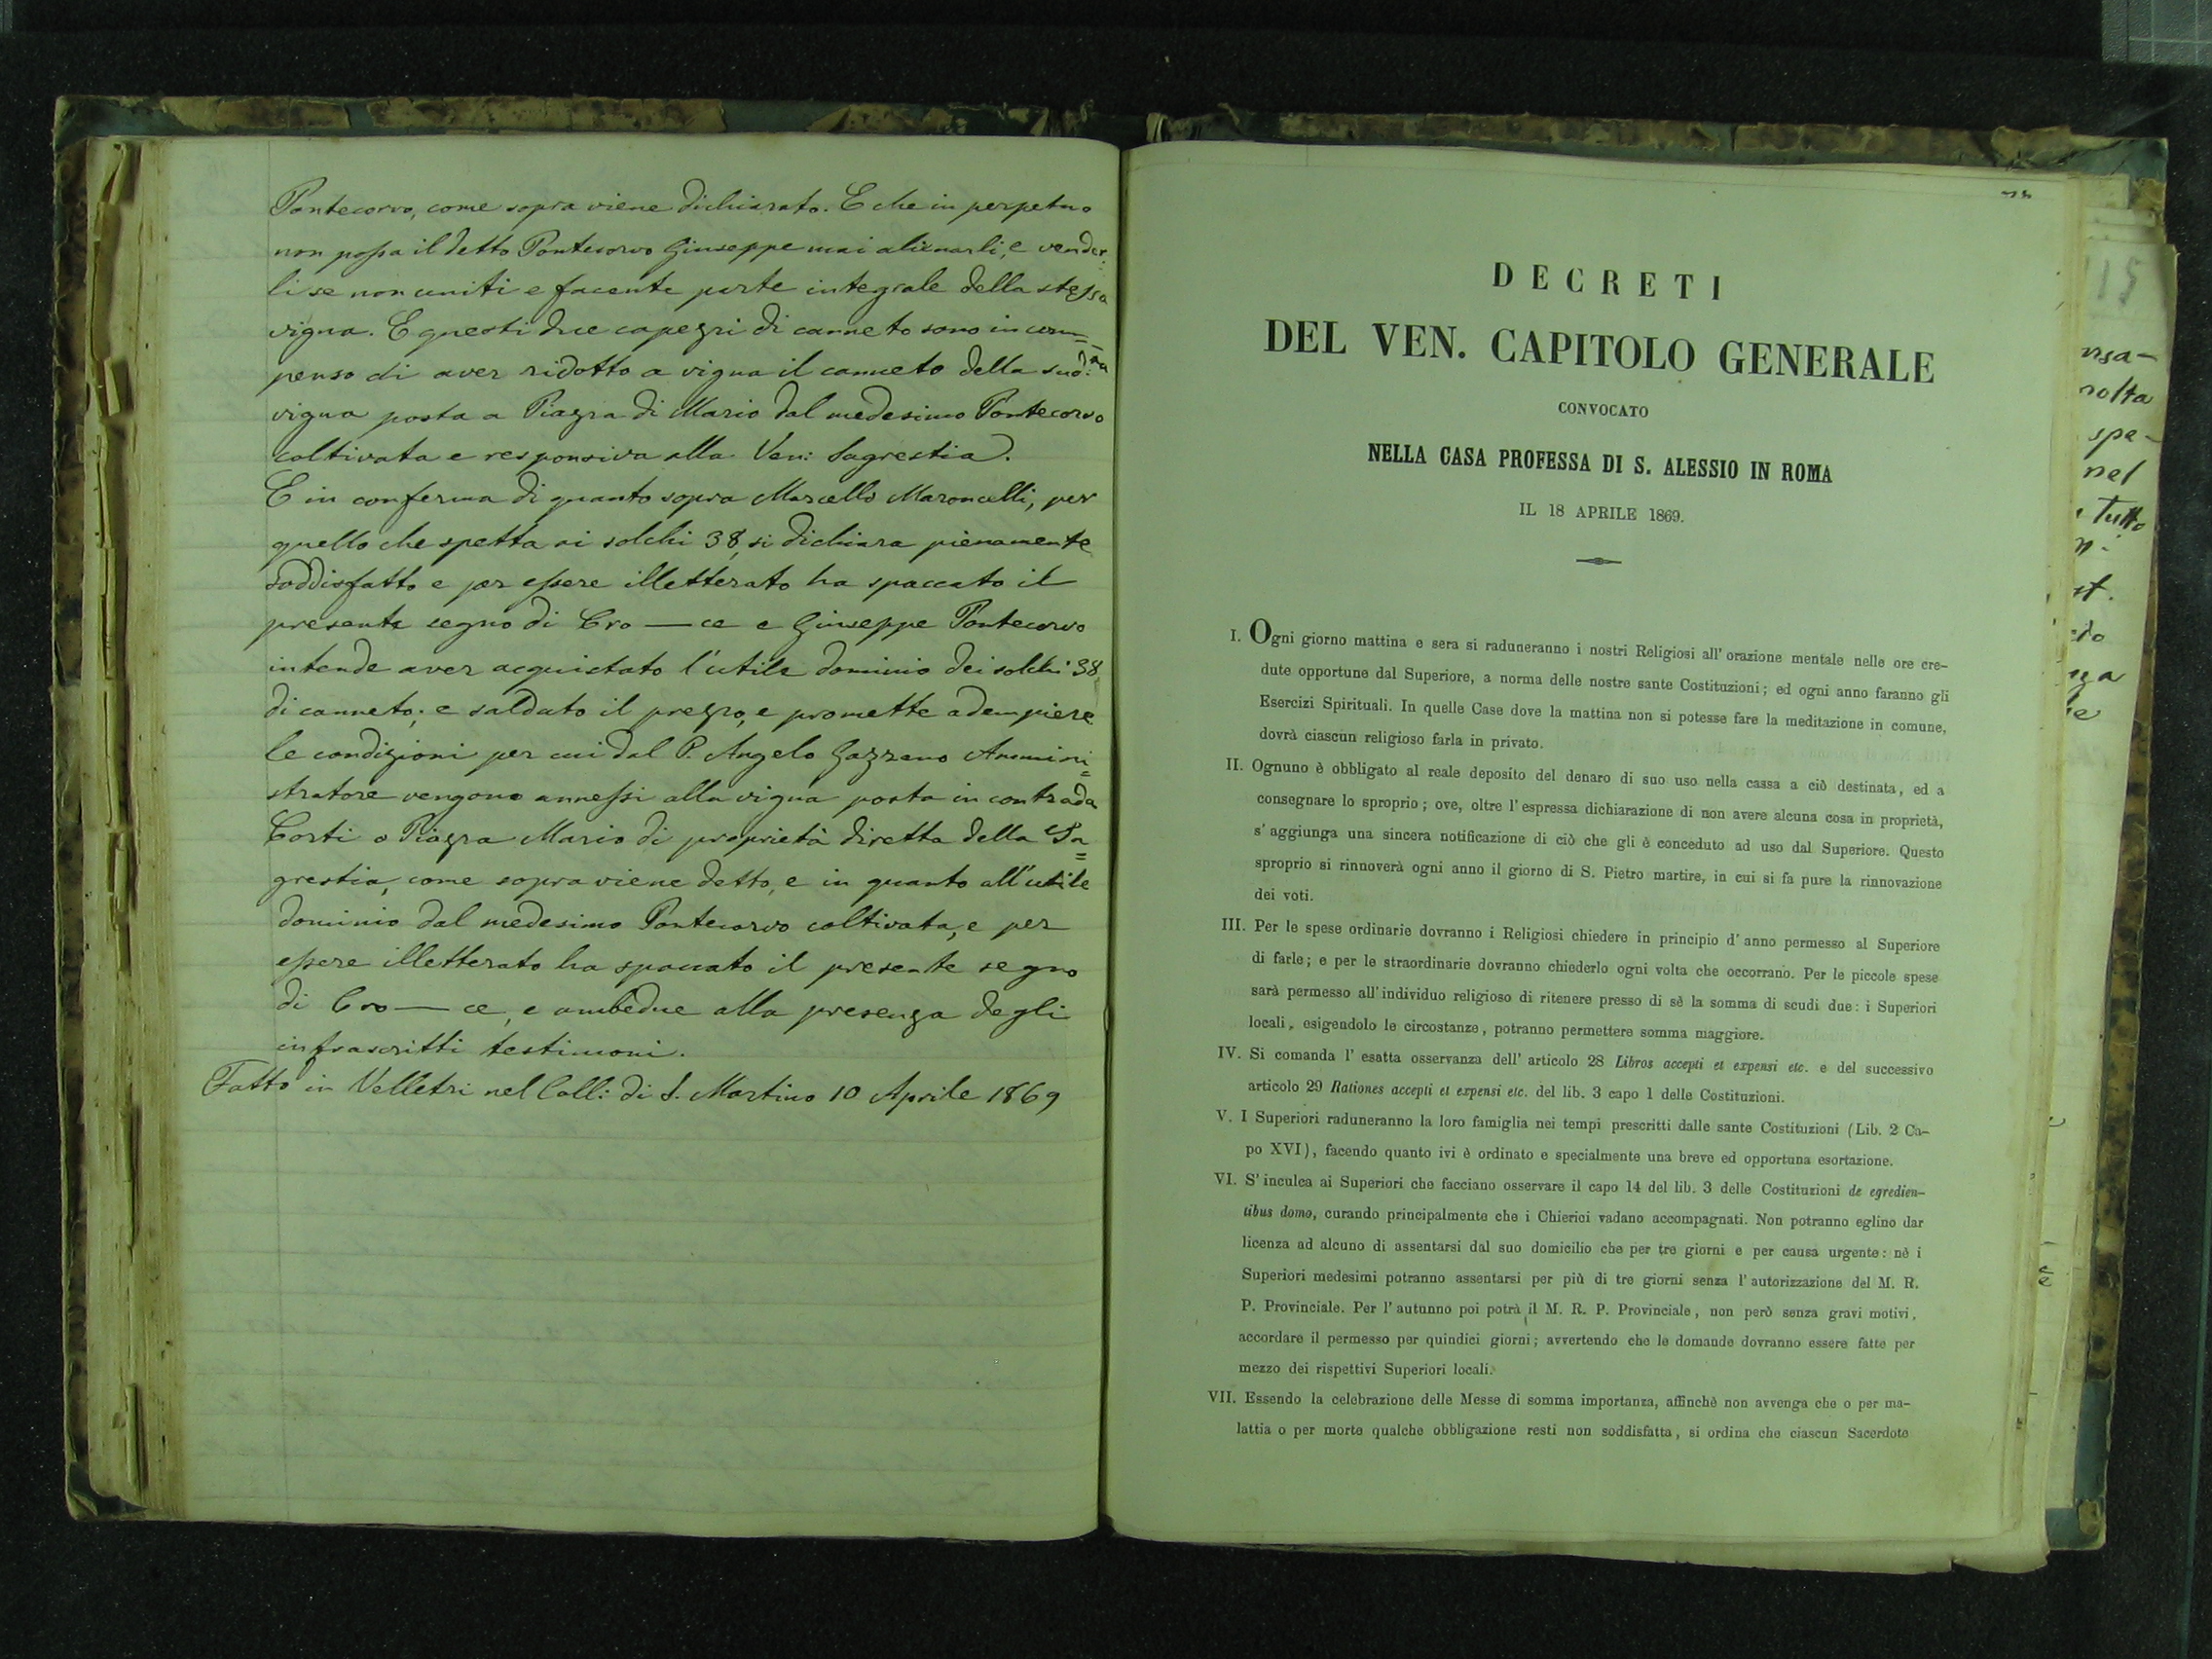 Pontecorvo, come sopra viene dichiarato. E che in perpetuo
non possa il detto Pontecorvo Giuseppe mai alienarli, e vender-
li se non uniti e facente parte integrale della stessa
vigna. E questi due capezzi di canneto sono in com=
penso di aver ridotto a vigna il canneto della sud:ª
vigna posta a Piazza di Mario dal medesimo Pontecorvo
coltivata e responsiva alla Ven: Sagrestia.
E in conferma di quanto sopra Marcello Maroncelli, per
quello che spetta ai solchi 38, si dichiara pienamente
soddisfatto e per essere illetterato ha spaccato il
presente segno di Cro — ce e Giuseppe Pontecorvo
intende aver acquistato l'utile dominio dei solchi 38
di canneto; e saldato il prezzo, e promette adempiere
le condizioni per cui dal P. Angelo Gazzano Ammini=
stratore vengono annessi alla vigna posta in contrada
Corti o Piazza Mario di proprietà diretta della Sa=
grestia, come sopra viene detto, e in quanto all'utile
dominio dal medesimo Pontecorvo coltivata, e per
essere illetterato ha spaccato il presente segno
di Cro — ce, e ambedue alla presenza degli
infrascritti testimoni.
Fatto in Velletri nel Coll: di S. Martino 10 Aprile 1869
DECRETI
DEL VEN. CAPITOLO GENERALE
CONVOCATO
NELLA CASA PROFESSA DI S. ALESSIO IN ROMA
IL 18 APRILE 1869.
I. Ogni giorno mattina e sera si raduneranno i nostri Religiosi all' orazione mentale nelle ore cre-
dute opportune dal Superiore, a norma delle nostre sante Costituzioni; ed ogni anno faranno gli
Esercizi Spirituali. In quelle Case dove la mattina non si potesse fare la meditazione in comune,
dovrà ciascun religioso farla in privato.
II. Ognuno è obbligato al reale deposito del denaro di suo uso nella cassa a ciò destinata, ed a
consegnare lo sproprio; ove, oltre l' espressa dichiarazione di non avere alcuna cosa in proprietà,
s' aggiunga una sincera notificazione di ciò che gli è conceduto ad uso dal Superiore. Questo
sproprio si rinnoverà ogni anno il giorno di S. Pietro martire, in cui si fa pure la rinnovazione
dei voti.
III. Per le spese ordinarie dovranno i Religiosi chiedere in principio d' anno permesso al Superiore
di farle; e per le straordinarie dovranno chiederlo ogni volta che occorrano. Per le piccole spese
sarà permesso all' individuo religioso di ritenere presso di sè la somma di scudi due: i Superiori
locali, esigendolo le circostanze, potranno permettere somma maggiore.
IV. Si comanda l' esatta osservanza dell' articolo 28 Libros accepti et expensi etc. e del successivo
articolo 29 Rationes accepti et expensi etc. del lib. 3 capo 1 delle Costituzioni.
V. I Superiori raduneranno la loro famiglia nei tempi prescritti dalle sante Costituzioni (Lib. 2 Ca-
po XVI), facendo quanto ivi è ordinato e specialmente una breve ed opportuna esortazione.
VI. S' inculca ai Superiori che facciano osservare il capo 14 del lib. 3 delle Costituzioni de egredien-
tibus domo, curando principalmente che i Chierici vadano accompagnati. Non potranno eglino dar
licenza ad alcuno di assentarsi dal suo domicilio che per tre giorni e per causa urgente: nè i
Superiori medesimi potranno assentarsi per più di tre giorni senza l' autorizzazione del M. R.
P. Provinciale. Per l' autunno poi potrà il M. R. P. Provinciale, non però senza gravi motivi,
accordare il permesso per quindici giorni; avvertendo che le domande dovranno essere fatte per
mezzo dei rispettivi Superiori locali.
VII. Essendo la celebrazione delle Messe di somma importanza, affinchè non avvenga che o per ma-
lattia o per morte qualche obbligazione resti non soddisfatta, si ordina che ciascun Sacerdote
115
nolta
spe-
nel
tutto